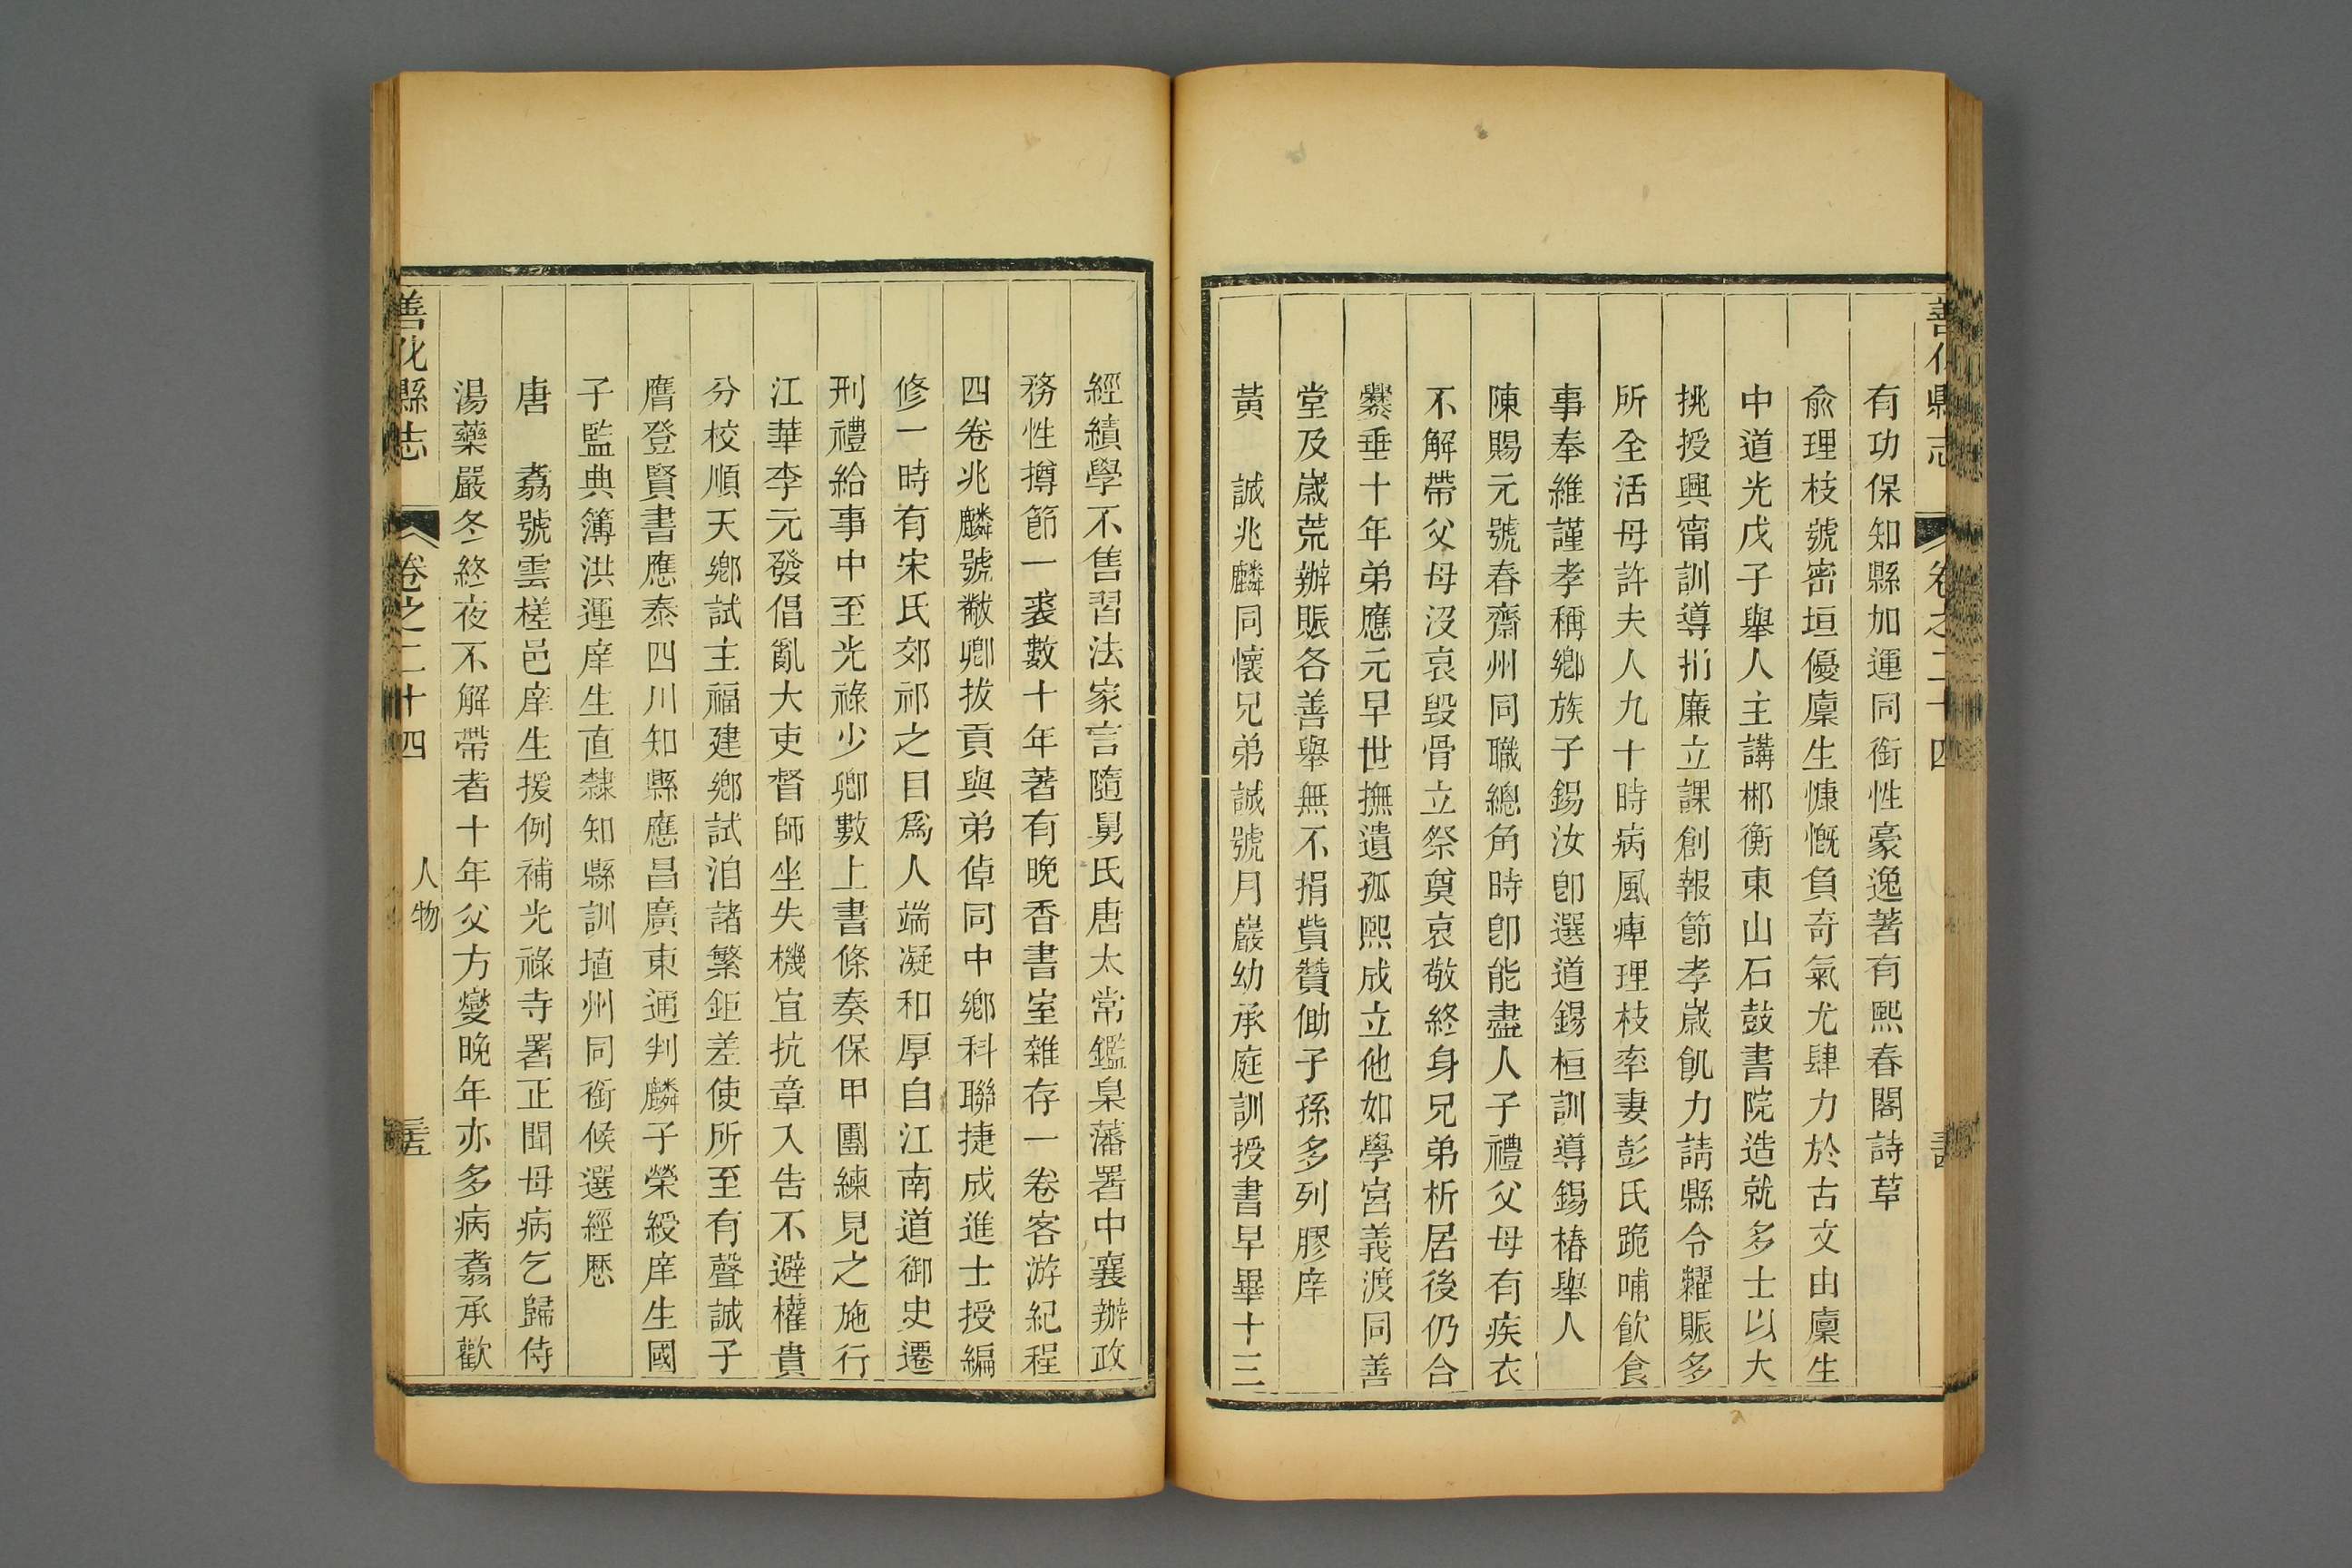 善化縣志 卷之二十四
有功保知縣加運同銜性豪逸著有熙春閣詩草
俞理枝號密垣優廩生慷慨負奇氣尤肆力於古文由廩生
中道光戊子舉人主講郴衡東山石鼓書院造就多士以大
挑授興甯訓導捐廉立課創報節孝嵗飢力請縣令糶賑多
所全活母許夫人九十時病風痺理枝率妻彭氏跪哺飮食
事奉維謹孝稱鄉族子錫汝卽選道錫桓訓導錫椿舉人
陳賜元號春齋州同職總角時卽能盡人子禮父母有疾衣
不解帶父母沒哀毀骨立祭奠哀敬終身兄弟析居後仍合
爨垂十年弟應元早世撫遺孤熙成立他如學宮義渡同善
堂及嵗荒辦賑各善舉無不捐貲贊勷子孫多列膠庠
黃　誠兆麟同懷兄弟誠號月巖幼承庭訓授書早畢十三
經績學不售習法家言隨舅氏唐太常鑑臬藩署中襄辦政
務性撙節一裘數十年著有晚香書室雜存一卷客游紀程
四卷兆麟號黻卿拔貢與弟倬同中鄉科聯捷成進士授編
修一時有宋氏郊祁之目爲人端凝和厚自江南道御史遷
刑禮給事中至光祿少卿數上書條奏保甲團練見之施行
江華李元發倡亂大吏督師坐失機宜抗章入告不避權貴
分校順天鄉試主福建鄉試洎諸繁鉅差使所至有聲誠子
膺登賢書應泰四川知縣應昌廣東通判麟子榮綬庠生國
子監典簿洪運庠生直隸知縣訓埴州同銜候選經歷
唐　翥號雲槎邑庠生援例補光祿寺署正聞母病乞歸侍
湯藥嚴冬終夜不解帶者十年父方夔晚年亦多病翥承歡
善化縣志 卷之二十四 人物